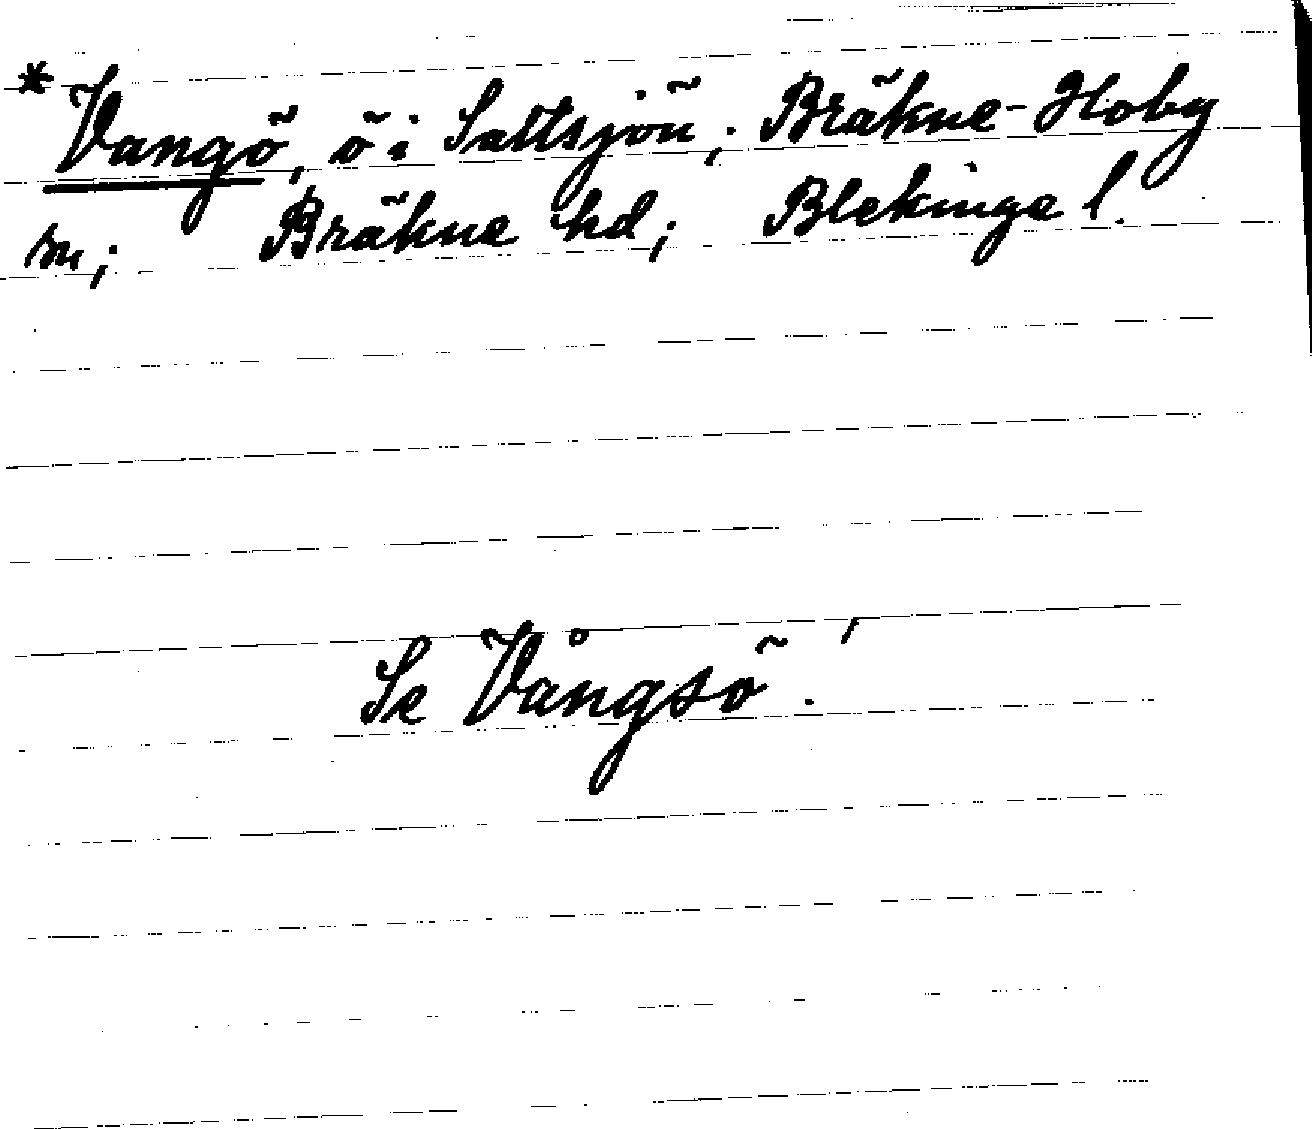 *Vangö, ö i Saltsjön; Bräkne-Hoby
sn; Bräkne hd; Blekinge l.
Se Vångsö!